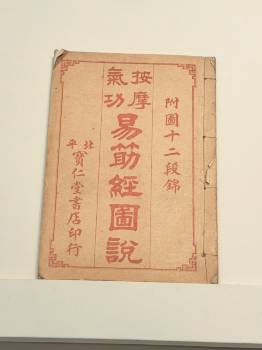 附圖十二段錦
按摩
氣功
易筋經圖說
北平
寶仁堂書店印行